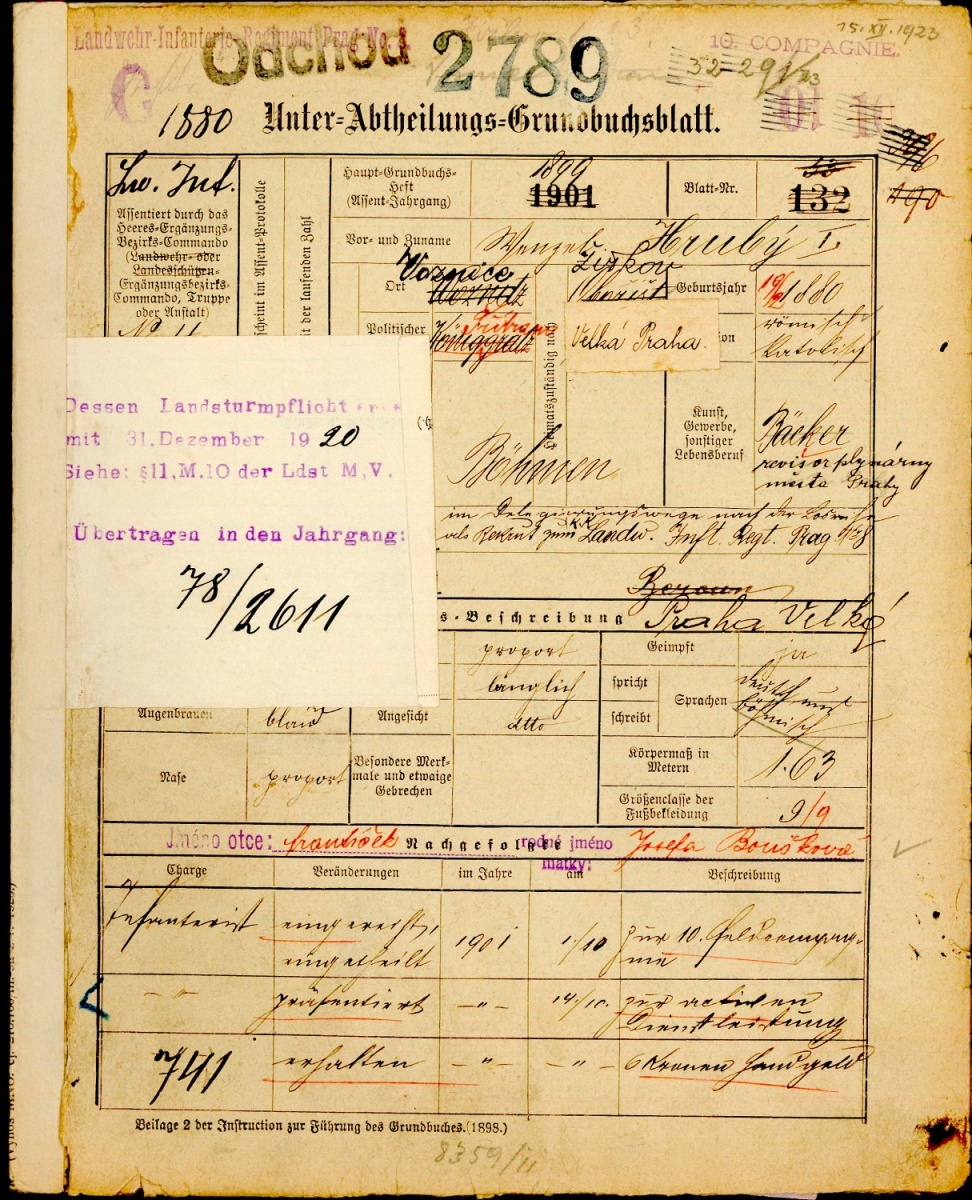 Landwehr-Infanterie-Regiment Prag No. 8
Odchod
2789
15.XII.1923
10. COMPAGNIE.
G
1880 Unter-Abtheilungs-Grundbuchsblatt.
Lw. Inf.
Assentiert durch das
Heeres-Ergänzungs-
Bezirks-Commando
(Landwehr- oder
Landesschützen-
Ergänzungsbezirks-
Commando, Truppe
oder Anstalt)
scheint im Assent-Protokolle
der laufenden Zahl
Haupt-Grundbuchs-
Heft
(Assent-Jahrgang)
1899
1901
Blatt-Nr.
132
190
Vor- und Zuname
Wenzel Hrubý I.
Ort
Voznice
Žižkov
Geburtsjahr
19/2 1880
Politischer
Königgrätz
Heimatszuständig nach
Velká Praha.
ion
römisch
katolisch
Böhmen
Kunst,
Gewerbe,
sonstiger
Lebensberuf
Bäcker
revisor plynárny
města Prahy
Dessen Landsturmpflicht
mit 31.Dezember 1920
Siehe: §11,M.10 der Ldst M,V.
Übertragen in den Jahrgang:
78/2611
im Delegierungswege nach der
als Rekrut zum k.k. Landw. Inft. Regt. Prag No 8
Beroun
s-Beschreibung
Praha Velká
proport
Geimpft
ja
länglich
spricht
schreibt
Sprachen
deutsch und
böhmisch
Augenbrauen
Angesicht
dtto
Nase
proport
Besondere Merk-
male und etwaige
Gebrechen
Körpermaß in
Metern
1·63
Größenclasse der
Fußbekleidung
9/9
Jméno otce: František
Nachgefol
rodné jméno
matky:
Josefa Boušková
Charge
Veränderungen
im Jahre
am
Beschreibung
Infanterist
eingereiht,
eingetheilt
1901
1/10
zur 10. Feldcompag-
nie
-"-
präsentiert
-"-
14/10.
zur activen
Dienstleistung
741
erhalten
-"-
-"-
6 Kronen Handgeld
Beilage 2 der Instruction zur Führung des Grundbuches.(1898.)
8359/II